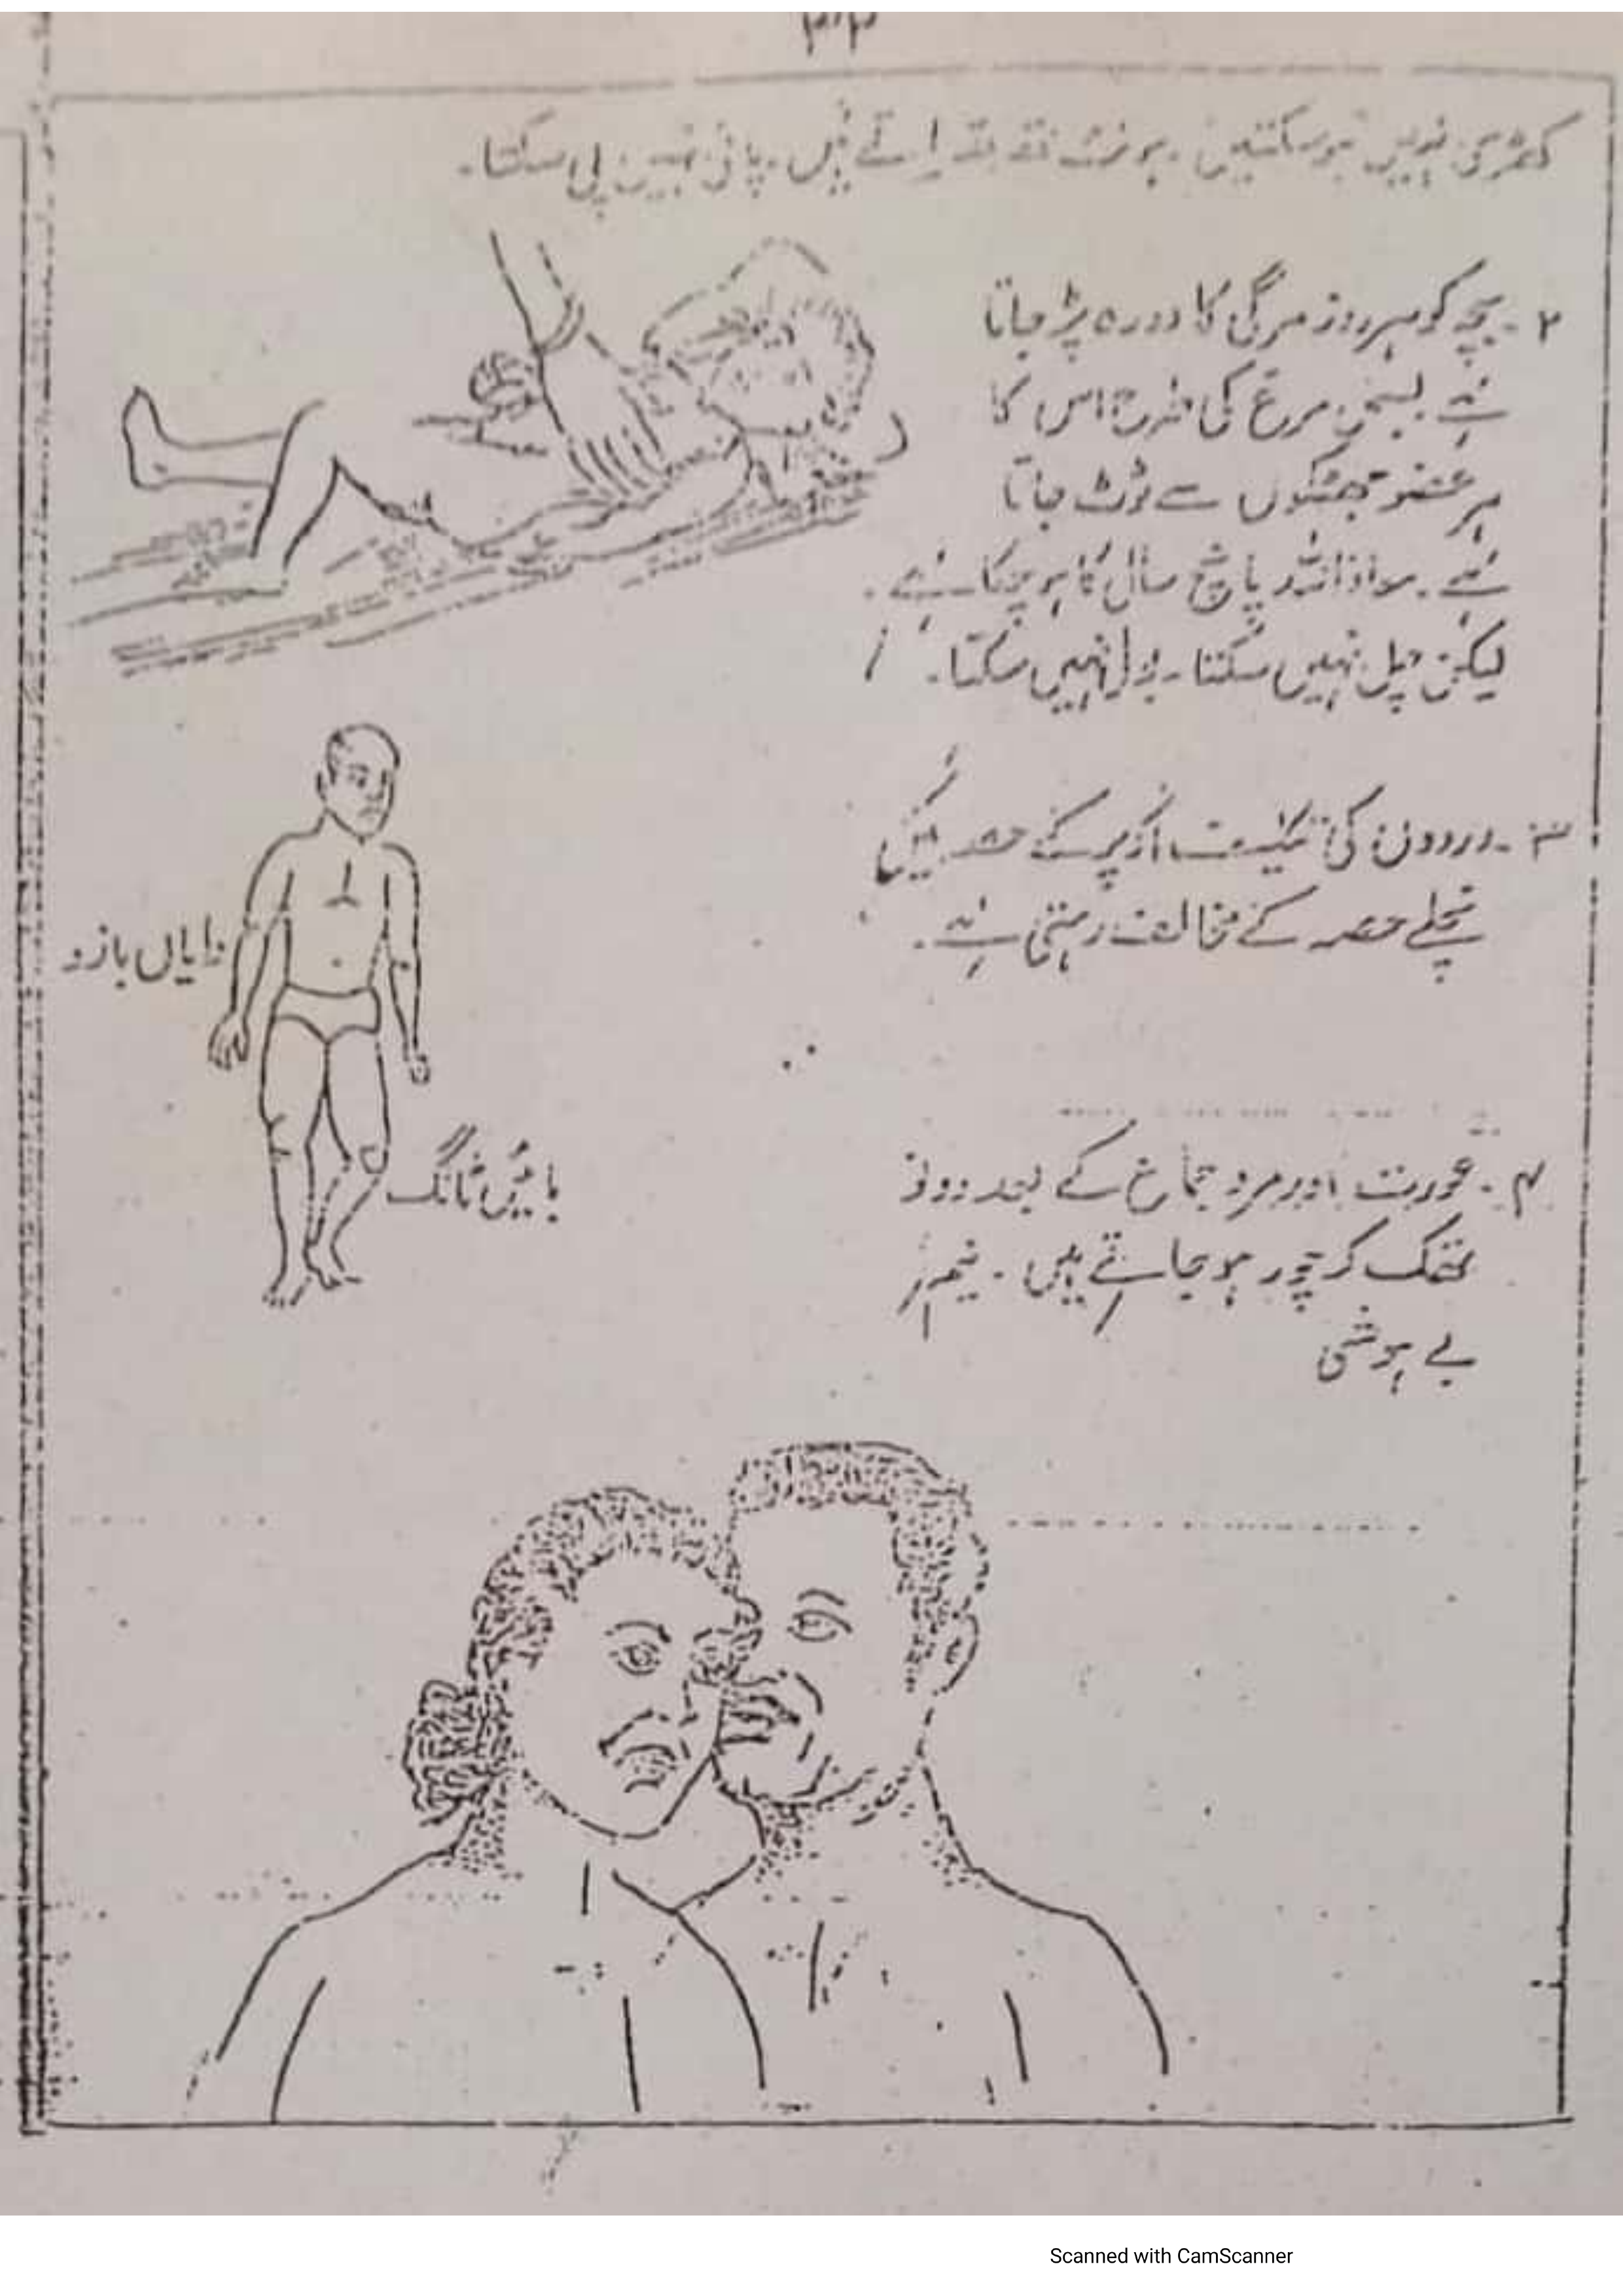 کھڑی نہیں ہو سکتیں۔ ہونٹ تھرتھراتے ہیں۔ پانی نہیں پی سکتا۔
۲۔ بچہ کو ہر روز مرگی کا دورہ پڑ جاتا
ہے بسمل مرغ کی طرح اس کا
ہر عضو جھٹکوں سے ٹوٹ جاتا
ہے۔ پانچ سال کا ہو چکا ہے۔
لیکن چل نہیں سکتا۔ بول نہیں سکتا۔
۳۔ دردوں کی تکلیف اوپر کے حصہ میں
نچلے حصہ کے مخالف رہتی ہے۔
دایاں بازو
بائیں ٹانگ
۴۔ عورت اور مرد جماع کے بعد دونوں
تھک کر چور ہو جاتے ہیں۔ نیم
بے ہوشی
Scanned with CamScanner